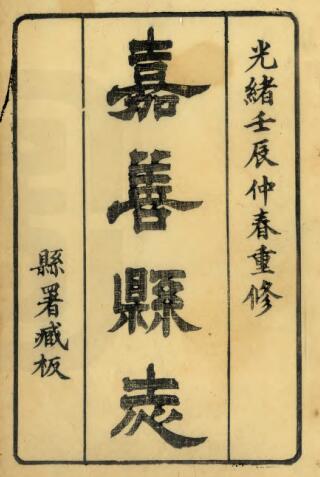 光緒壬辰仲春重修
嘉善縣志
縣署臧板